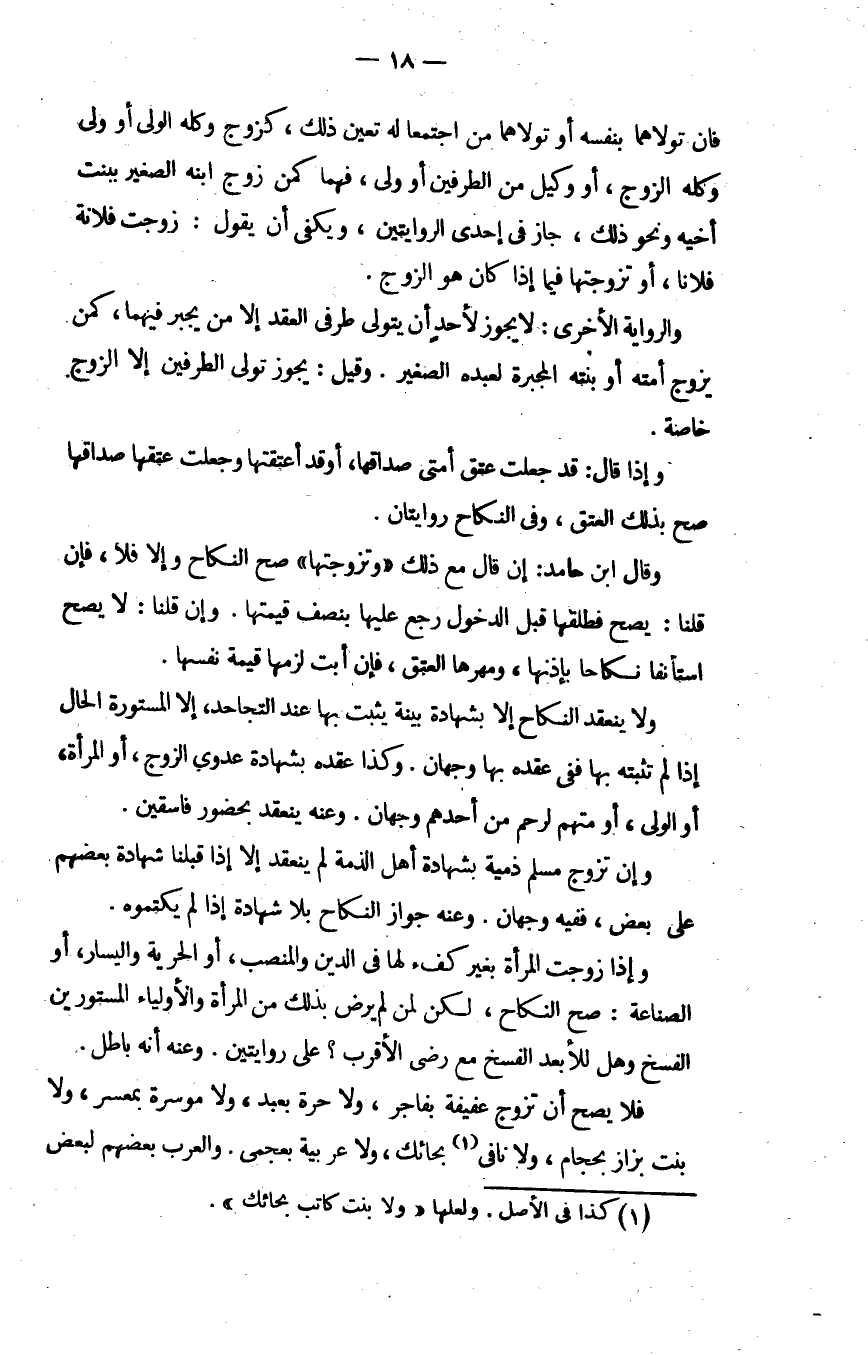 — ١٨ —
فان تولاهما بنفسه أو تولاهما من اجتمعا له تعين ذلك ، كزوج وكله الولى أو ولى
وكله الزوج ، أو وكيل من الطرفين أو ولى ، فهما كمن زوج ابنه الصغير ببنت
أخيه ونحو ذلك ، جاز فى إحدى الروايتين ، ويكفى أن يقول : زوجت فلانة
فلانا ، أو تزوجتها فيما إذا كان هو الزوج .
والرواية الأخرى : لايجوز لأحد أن يتولى طرفى العقد إلا من يجبر فيهما ، كمن
يزوج أمته أو بنته المجبرة لعبده الصغير . وقيل : يجوز تولى الطرفين إلا الزوج
خاصة .
وإذا قال : قد جعلت عتق أمتى صداقها، أوقد أعتقتها وجعلت عتقها صداقها
صح بذلك العتق ، وفى النكاح روايتان .
وقال ابن حامد: إن قال مع ذلك «وتزوجتها» صح النكاح وإلا فلا ، فإن
قلنا : يصح فطلقها قبل الدخول رجع عليها بنصف قيمتها . وإن قلنا : لا يصح
استأنفا نكاحا بإذنها ، ومهرها العتق ، فإن أبت لزمها قيمة نفسها .
ولا ينعقد النكاح إلا بشهادة بينة يثبت بها عند التجاحد، إلا المستورة الحال
إذا لم تثبته بها ففى عقده بها وجهان . وكذا عقده بشهادة عدوي الزوج ، أو المرأة،
أو الولى ، أو متهم لرحم من أحدهم وجهان . وعنه ينعقد بحضور فاسقين .
وإن تزوج مسلم ذمية بشهادة أهل الذمة لم ينعقد إلا إذا قبلنا شهادة بعضهم
على بعض ، ففيه وجهان . وعنه جواز النكاح بلا شهادة إذا لم يكتموه .
وإذا زوجت المرأة بغير كفء لها فى الدين والمنصب ، أو الحرية واليسار، أو
الصناعة : صح النكاح ، لكن لمن لم يرض بذلك من المرأة والأولياء المستورين
الفسخ وهل للأبعد الفسخ مع رضى الأقرب ؟ على روايتين . وعنه أنه باطل .
فلا يصح أن تزوج عفيفة بفاجر ، ولا حرة بعبد ، ولا موسرة بمعسر ، ولا
بنت بزاز بحجام ، ولا نافى(١) بحائك ، ولا عربية بعجمى . والعرب بعضهم لبعض
(١) كذا فى الأصل . ولعلها « ولا بنت كاتب بحائك » .